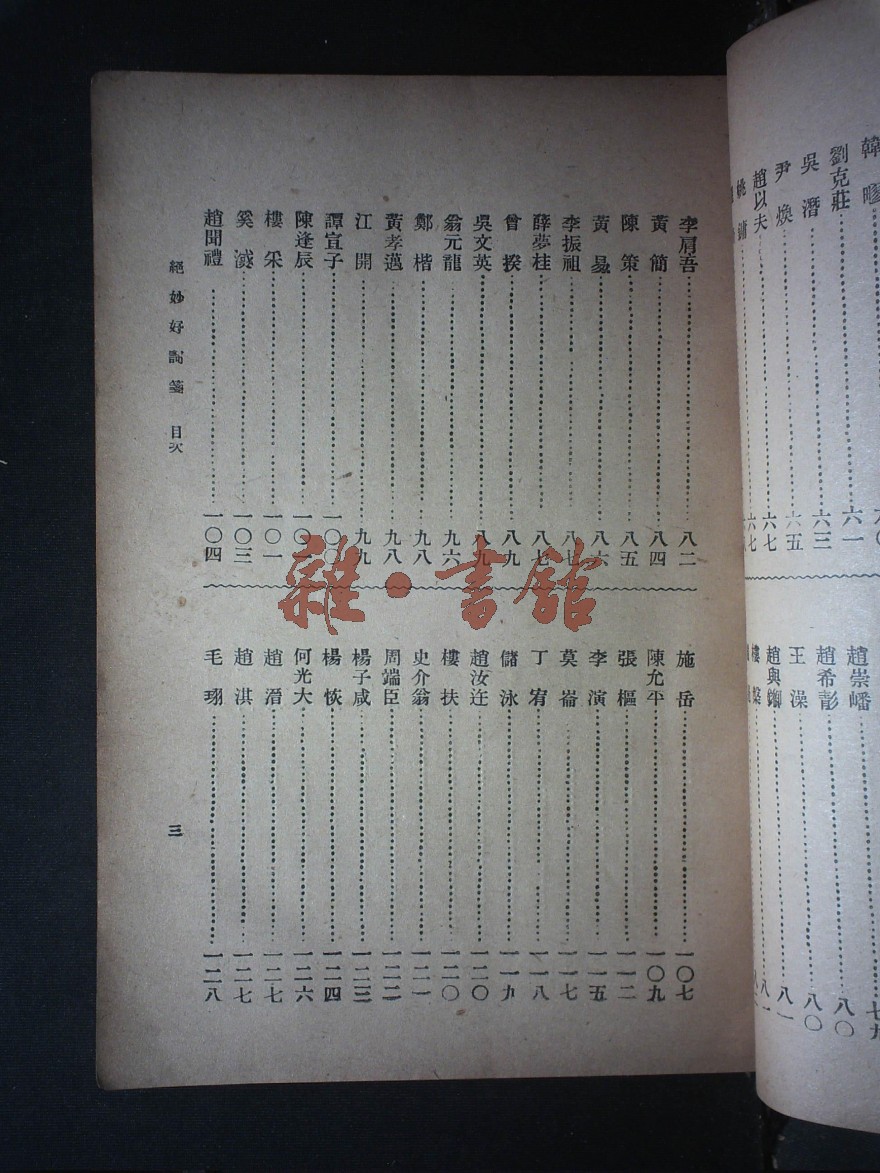 韓疁
劉克莊……六一
吳潛……六三
尹煥……六五
趙以夫……六七
姚鏞……六七
趙崇嶓……七九
趙希彭……八〇
王澡……八〇
趙與鋤……八一
樓槃……八一
李肩吾……八二
黃簡……八四
陳策……八五
黃昜……八六
李振祖……八七
薛夢桂……八七
曾揆……八九
吳文英……八九
翁元龍……九六
鄭楷……九八
黃孝邁……九八
江開……九九
譚宣子……一〇〇
陳逢辰……一〇一
樓采……一〇一
奚㴒……一〇三
趙聞禮……一〇四
施岳……一〇七
陳允平……一〇九
張樞……一一二
李演……一一五
莫崙……一一七
丁宥……一一八
儲泳……一一九
趙汝迕……一二〇
樓扶……一二〇
史介翁……一二一
周端臣……一二二
楊子咸……一二三
楊恢……一二四
何光大……一二六
趙溍……一二七
趙淇……一二七
毛珝……一二八
絕妙好詞箋 目次
三
雜·書館